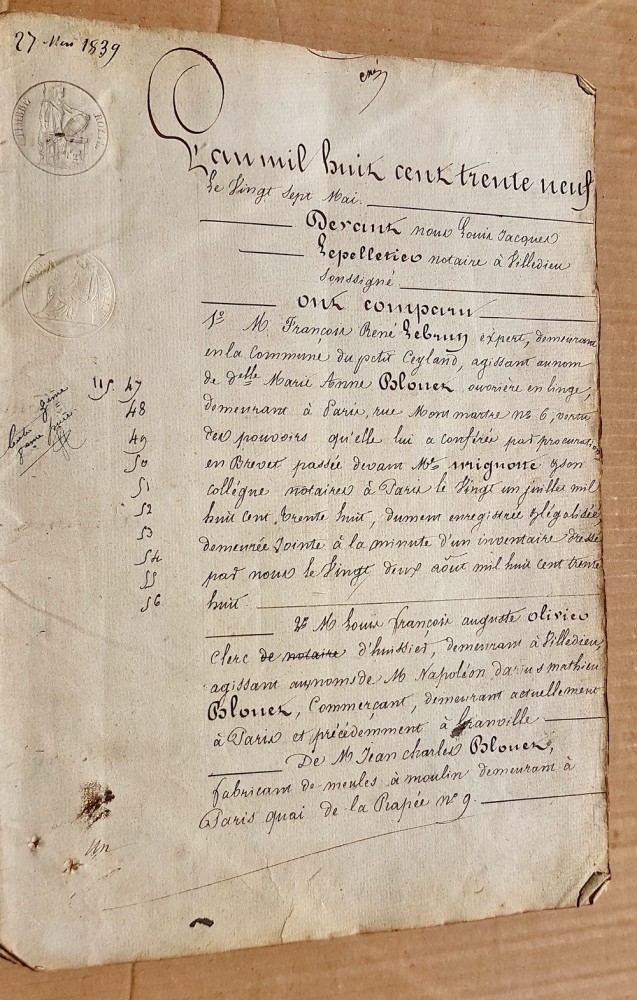 27 Mai 1839
TIMBRE ROYAL
L'an mil huit cent trente neuf
Le Vingt sept Mai.
Devant nous Louis Jacques
Lepelletier notaire à Villedieu
soussigné
ont comparu
1º M. François René Lebrun expert, demeurant
en la Commune du petit Ceyland, agissant au nom
de delle Marie Anne Blouet ouvrière en linge,
demeurant à Paris, rue Montmartre nº 6, vertu
des pouvoirs qu'elle lui a conférée par procuration
en Brevet passée devant Me Wrignotte & son
collégue notaires à Paris le Vingt un juillet mil
huit cent trente huit, dument enregistrée & légalisée,
demeurée Jointe à la minute d'un inventaire dressé
par nous le Vingt deux août mil huit cent trente
huit.
2º M Louis françois auguste Olivier
Clerc de notaire d'huissier, demeurant à Villedieu,
agissant au noms de M Napoléon darius mathieu
Blouet, Commerçant, demeurant actuellement
à Paris et précédemment à Granville
De M Jean Charles Blouet,
fabricant de meules à moulin demeurant à
Paris quai de la Rapée nº 9.
47
48
49
50
51
52
53
54
55
56